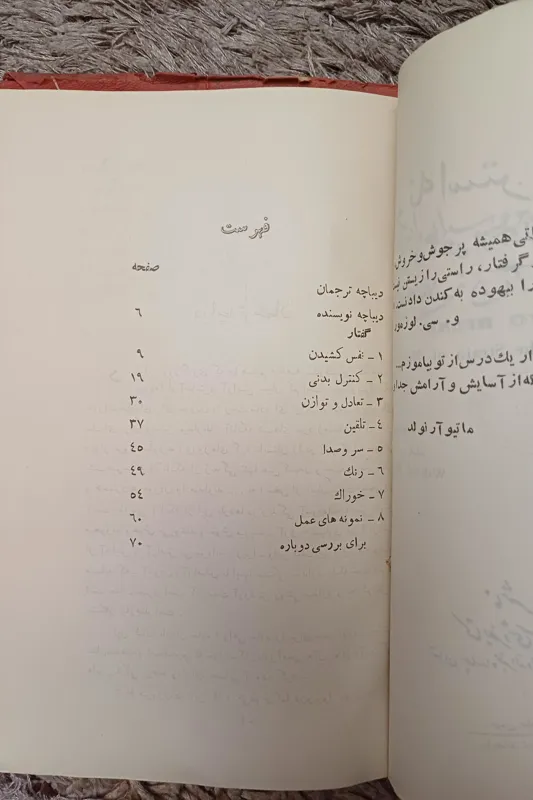 فهرست
صفحه
دیباچه ترجمان
دیباچه نویسنده ٦
گفتار
١ - نفس کشیدن ٩
٢ - کنترل بدنی ١٩
٣ - تعادل و توازن ٣٠
٤ - تلقین ٣٧
٥ - سر وصدا ٤٥
٦ - رنك ٤٩
٧ - خوراك ٥٤
٨ - نمونه های عمل ٦٠
برای بررسی دوباره ٧٠
همیشه پر جوش و خروش
گرفتار، راستی را زیستن
بیهوده به کندن دادنست
و. سی. لوزمور
یك درس از تو بیاموزم
از آسایش و آرامش
ماتیو آرنولد